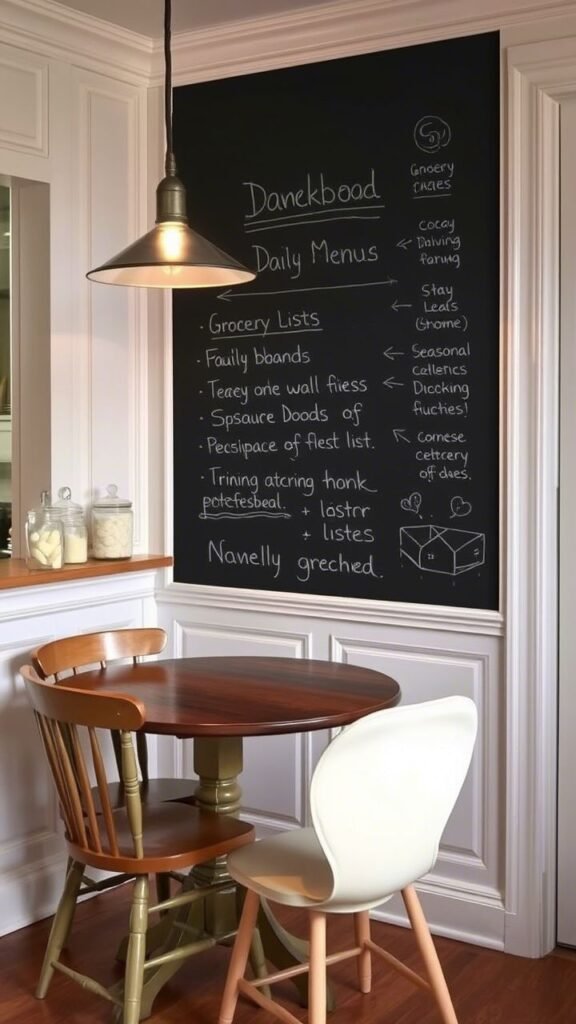 Danekboad
Daily Menus
Grocery Lists
Fauily bbands
Teaey one wall fiess
Spsaure Doods of
Pecslpace of flest list.
Trining atcring thonk
potefesbeal.
+ lastrr
+ listes
Navelly grechred.
Stay
Leals
(Shome)
Seasonal
cellerics
Diccking
fucties!
Comese
cettcery
of daes.